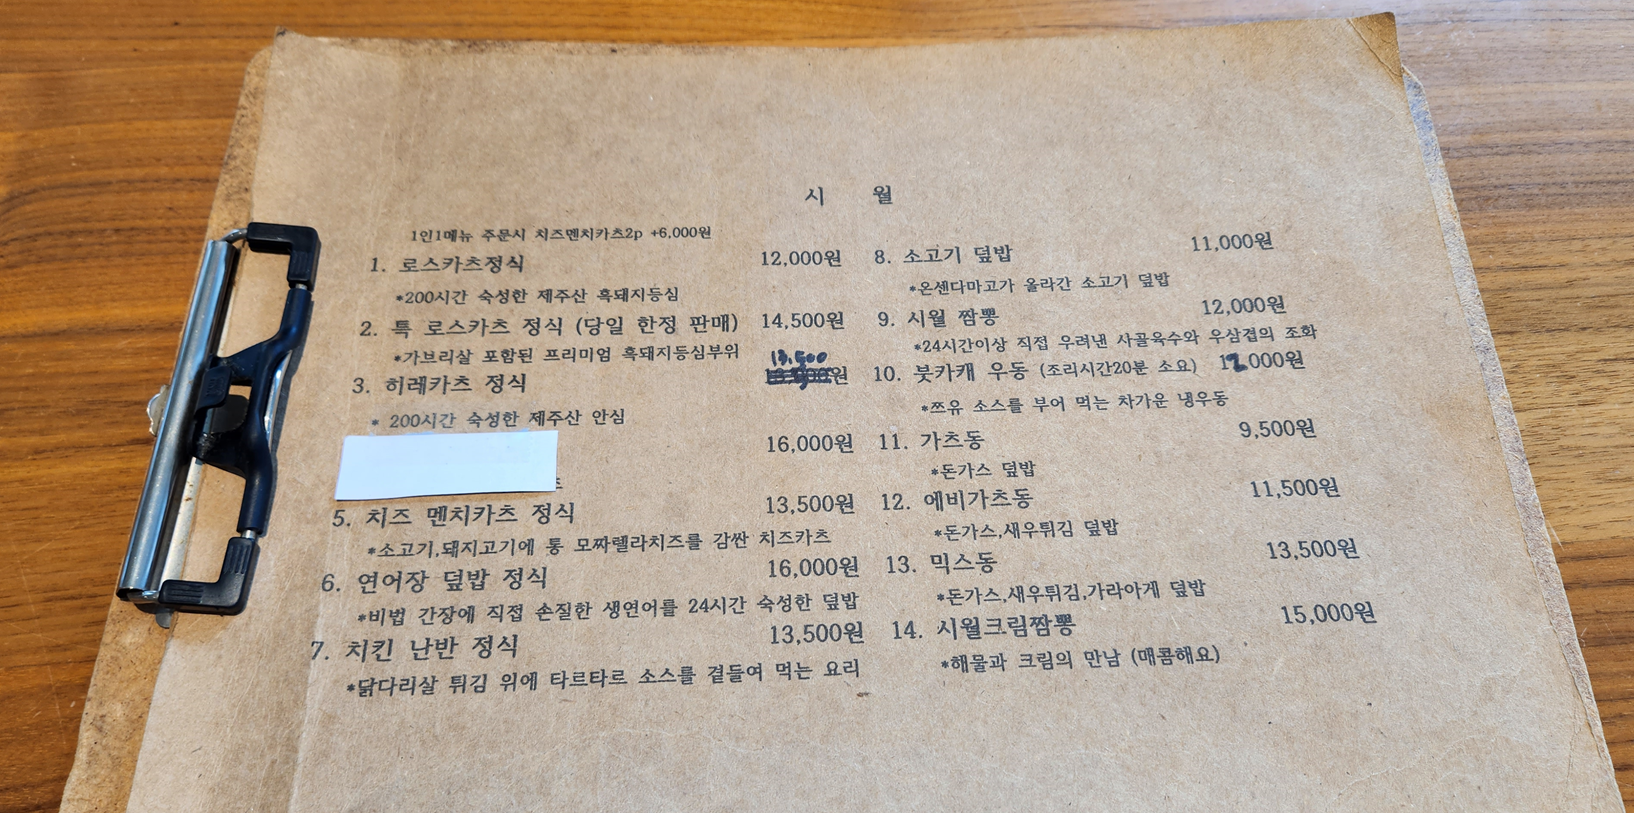 시 월
1인1메뉴 주문시 치즈멘치카츠2p +6,000원
1. 로스카츠정식 12,000원
*200시간 숙성한 제주산 흑돼지등심
2. 특 로스카츠 정식 (당일 한정 판매) 14,500원
*가브리살 포함된 프리미엄 흑돼지등심부위
13.500
3. 히레카츠 정식 원
* 200시간 숙성한 제주산 안심
16,000원
5. 치즈 멘치카츠 정식 13,500원
*소고기,돼지고기에 통 모짜렐라치즈를 감싼 치즈카츠
6. 연어장 덮밥 정식 16,000원
*비법 간장에 직접 손질한 생연어를 24시간 숙성한 덮밥
7. 치킨 난반 정식 13,500원
*닭다리살 튀김 위에 타르타르 소스를 곁들여 먹는 요리
8. 소고기 덮밥 11,000원
*온센다마고가 올라간 소고기 덮밥
9. 시월 짬뽕 12,000원
*24시간이상 직접 우려낸 사골육수와 우삼겹의 조화
10. 붓카캐 우동 (조리시간20분 소요) 12,000원
*쯔유 소스를 부어 먹는 차가운 냉우동
11. 가츠동 9,500원
*돈가스 덮밥
12. 에비가츠동 11,500원
*돈가스,새우튀김 덮밥
13. 믹스동 13,500원
*돈가스,새우튀김,가라아게 덮밥
14. 시월크림짬뽕 15,000원
*해물과 크림의 만남 (매콤해요)